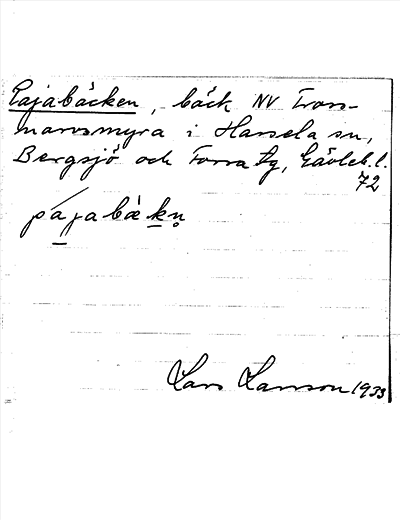 Pajabäcken, bäck NV Tross-
narvsmyra i Hassela sn,
Bergsjö och Forsa tg, Gävleb. l.
72
pajabäkn
Lars Larsson 1933